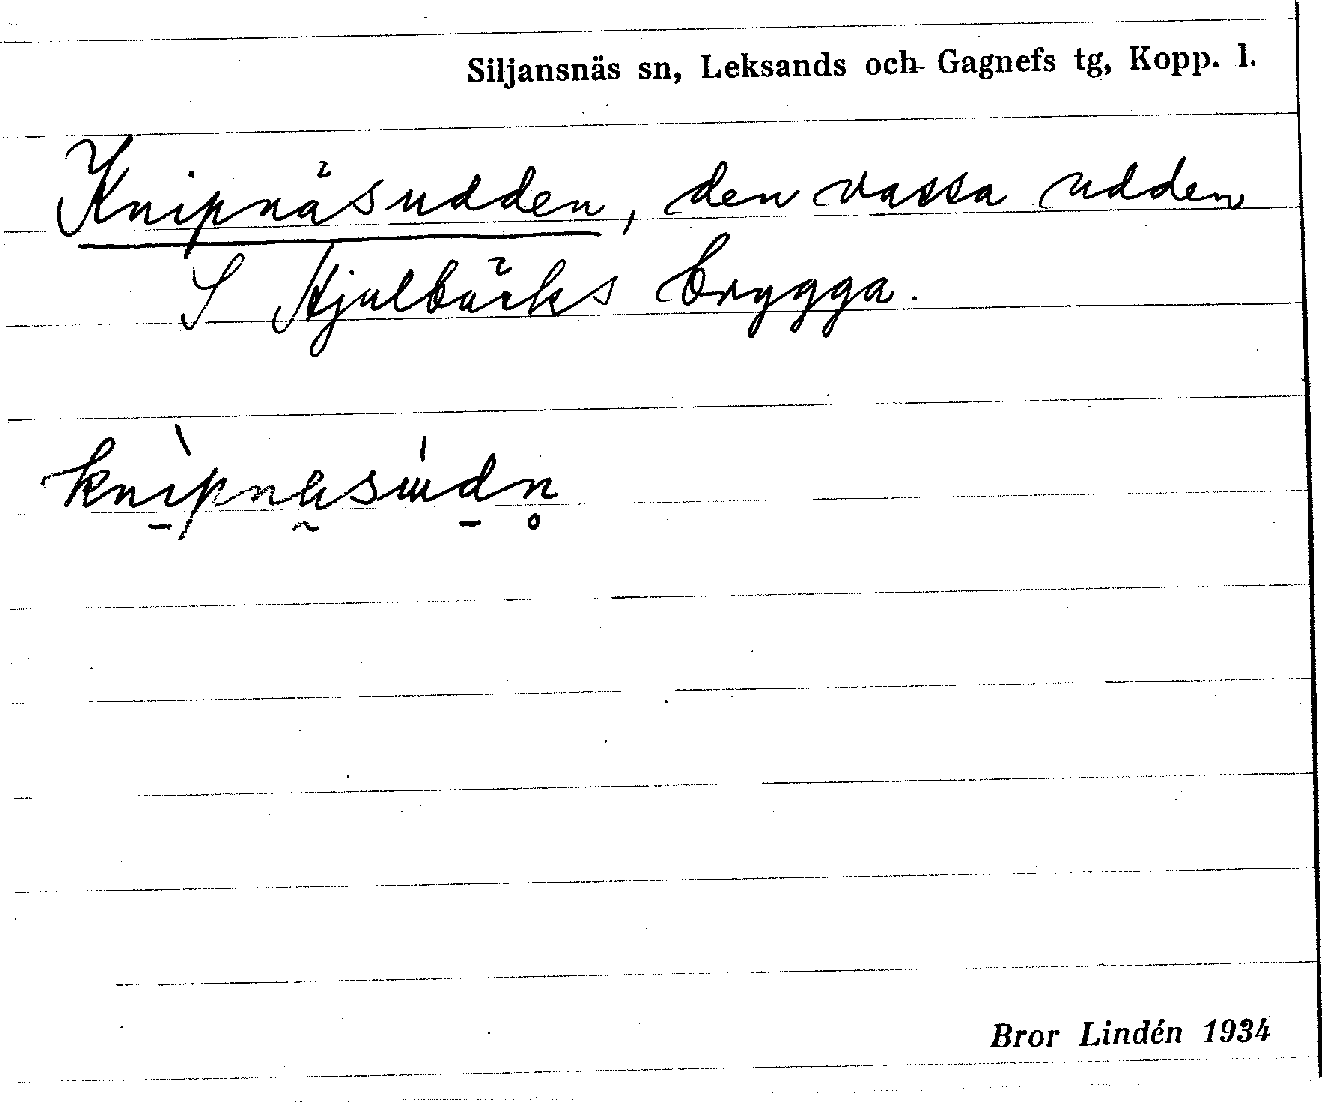 Siljansnäs sn, Leksands och Gagnefs tg, Kopp. l.
Knipnäsudden, den vassa udden
S Hjulbäcks brygga.
Bror Lindén 1934